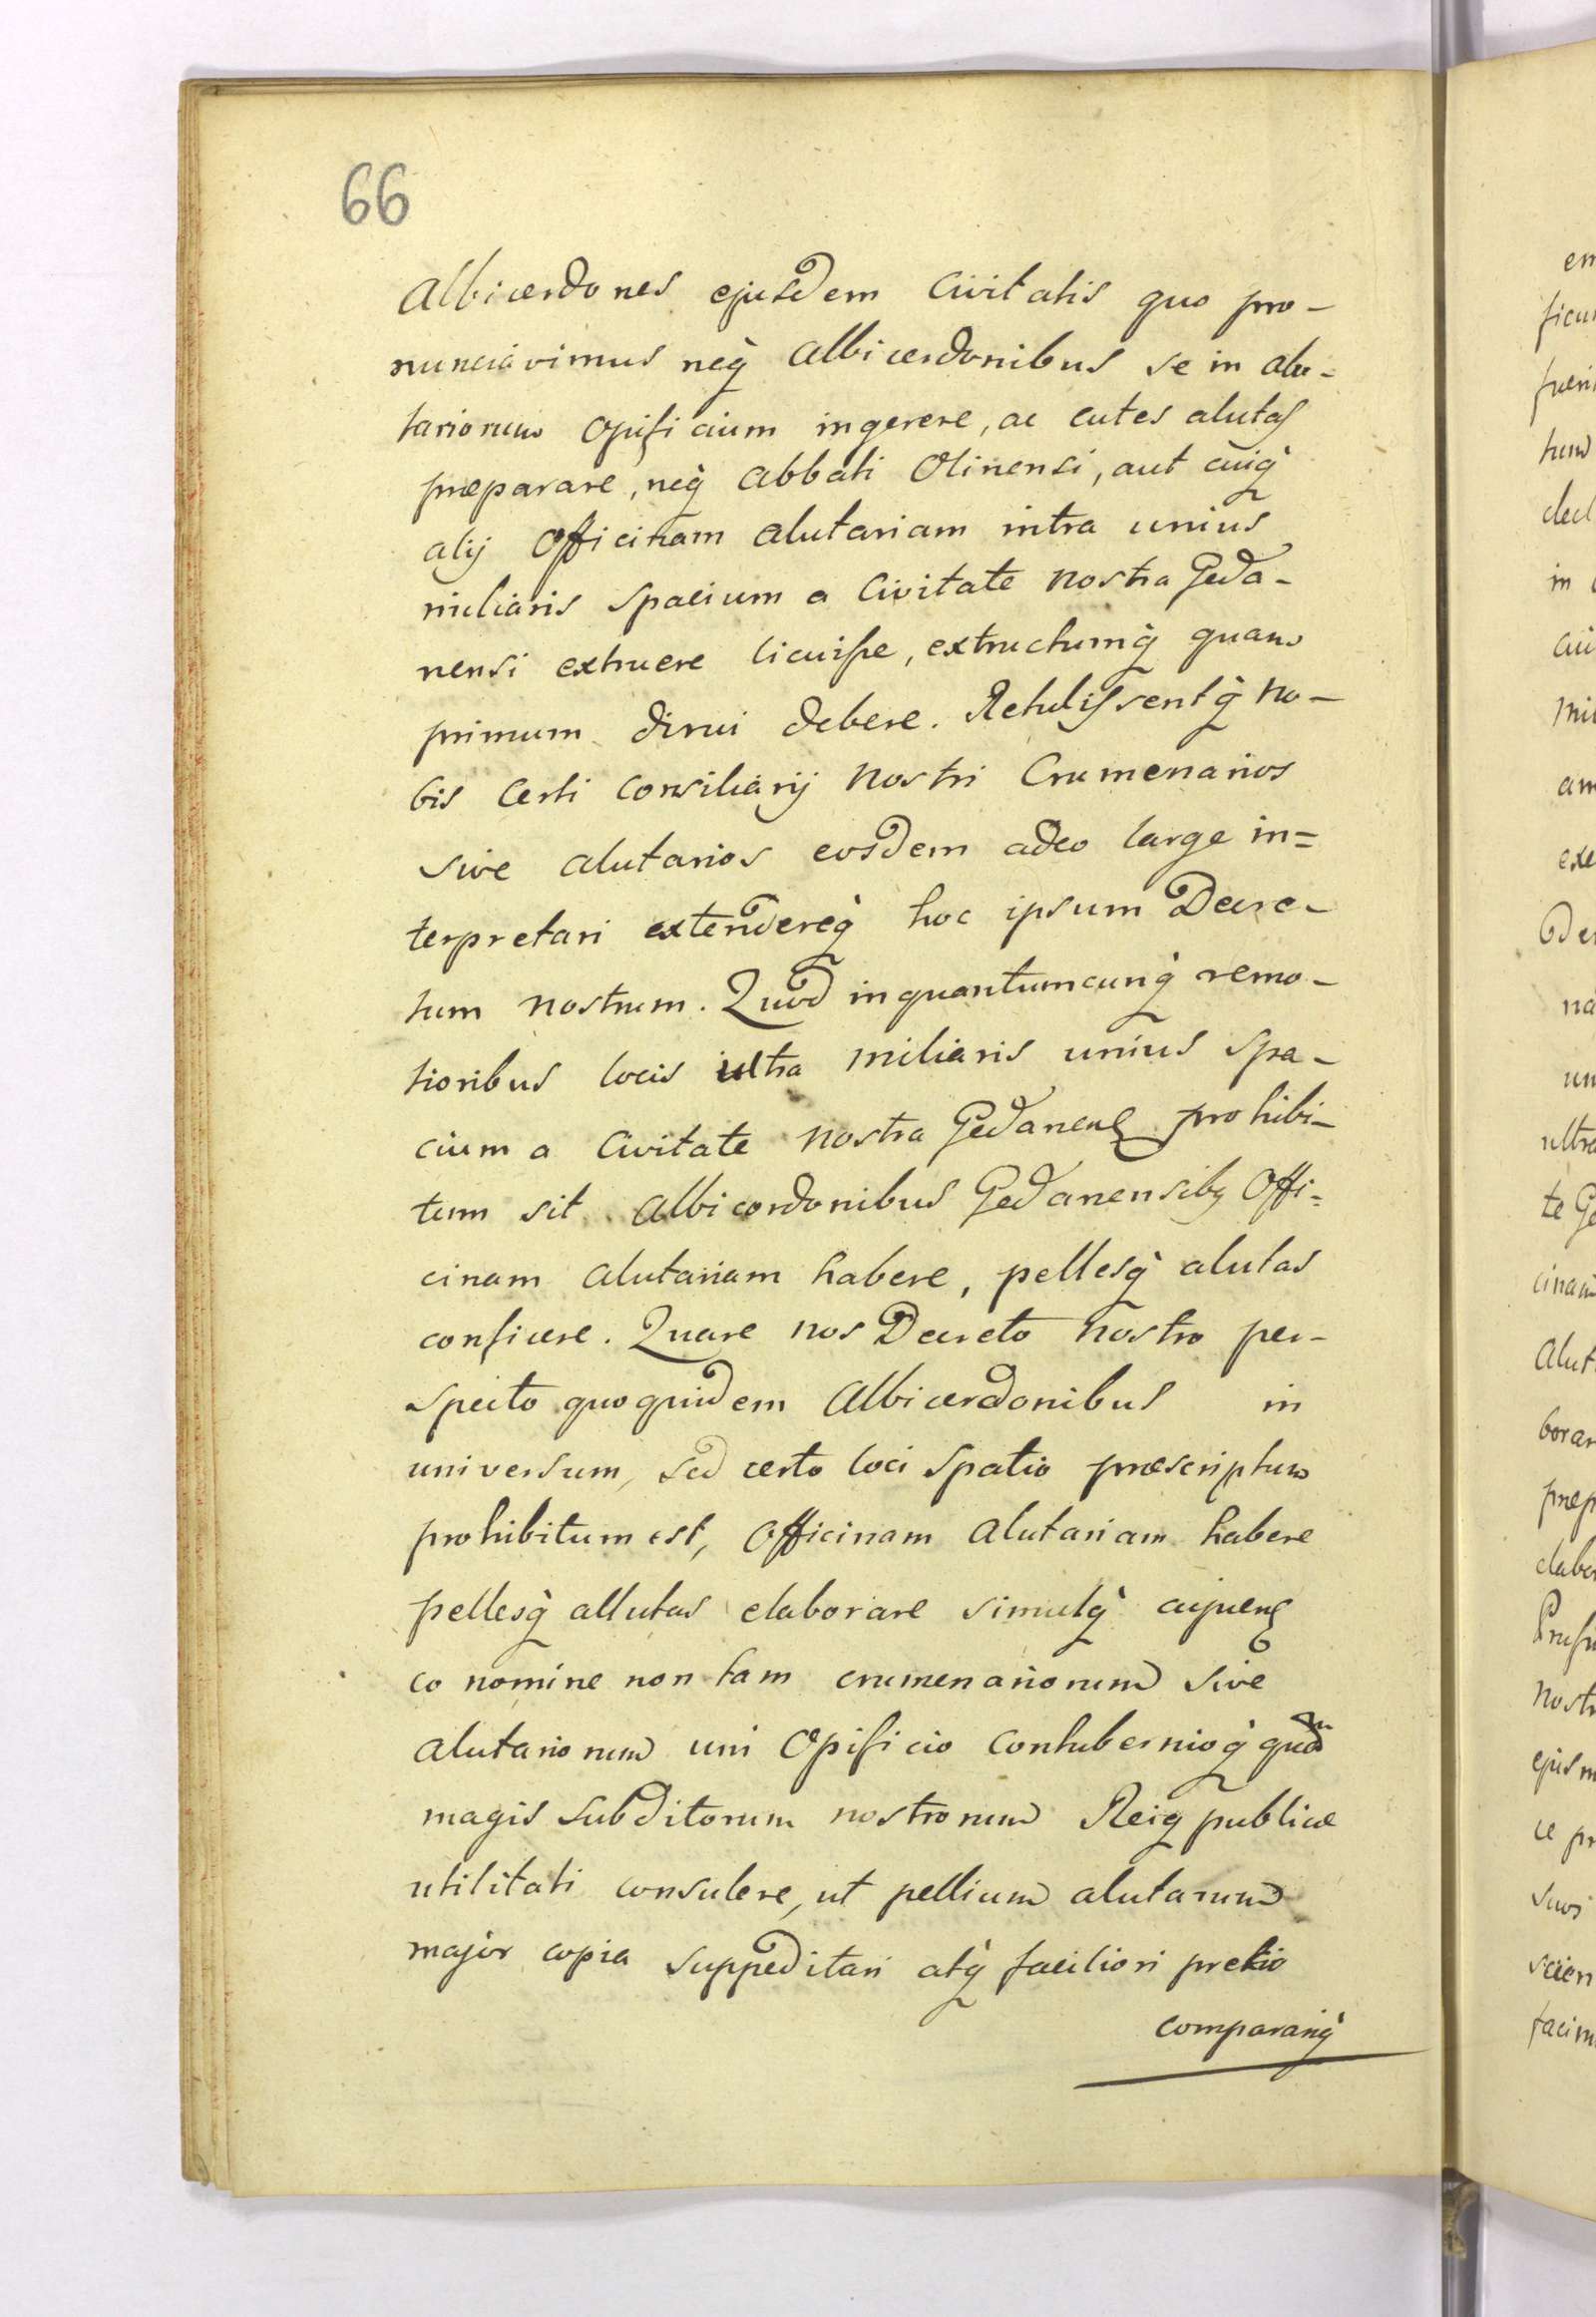 66
Albicerdones ejusdem Civitatis quo pro-
nunciavimus neq̀ Albicerdonibus se in alu-
tariorum Opificium ingerere, ac cutes alutas
præparare, neq̀ Abbati Olinensi, aut cuiq̀
alij Officinam alutariam intra unius
miliaris spacium a Civitate nostra Geda-
nensi extruere licuisse, extructumq̀ quam
primum dirui debere. Retulissentq̀ no-
bis Certi Consiliarij Nostri Crumenarios
sive alutarios eosdem adeo large in=
terpretari extendereq̀ hoc ipsum Decre-
tum nostrum. Quod inquantumcunq̀ remo-
tioribus locis ultra miliaris unius spa-
cium a Civitate nostra Gedanens prohibi-
tum sit Albicordonibus Gedanensibq Offi=
cinam alutariam habere, pellesq̀ alutas
conficere. Quare nos Decreto nostro per-
specto quoquidem Albicerdonibus in
universum, sed certo loci spatio præscriptum
prohibitum est, Officinam alutariam habere
pellesq̀ allutas elaborare simulq̀
eo nomine non tam crumenariorum sive
alutariorum uni Opificio Contubernioq̀
magis subditorum nostrorum Reiq publicæ
utilitati consulere, ut pellium alutarum
major copia suppeditari atq̀ faciliori pretio
comparariq̀
en
ficu
fueri
tum
decl
in
cui
mil
am
exe
na
un
ultra
te Ge
cinam
Alut
borar
præp
elabo
Prusi
Nostr
ejusm
ce pr
suos
scien
facim